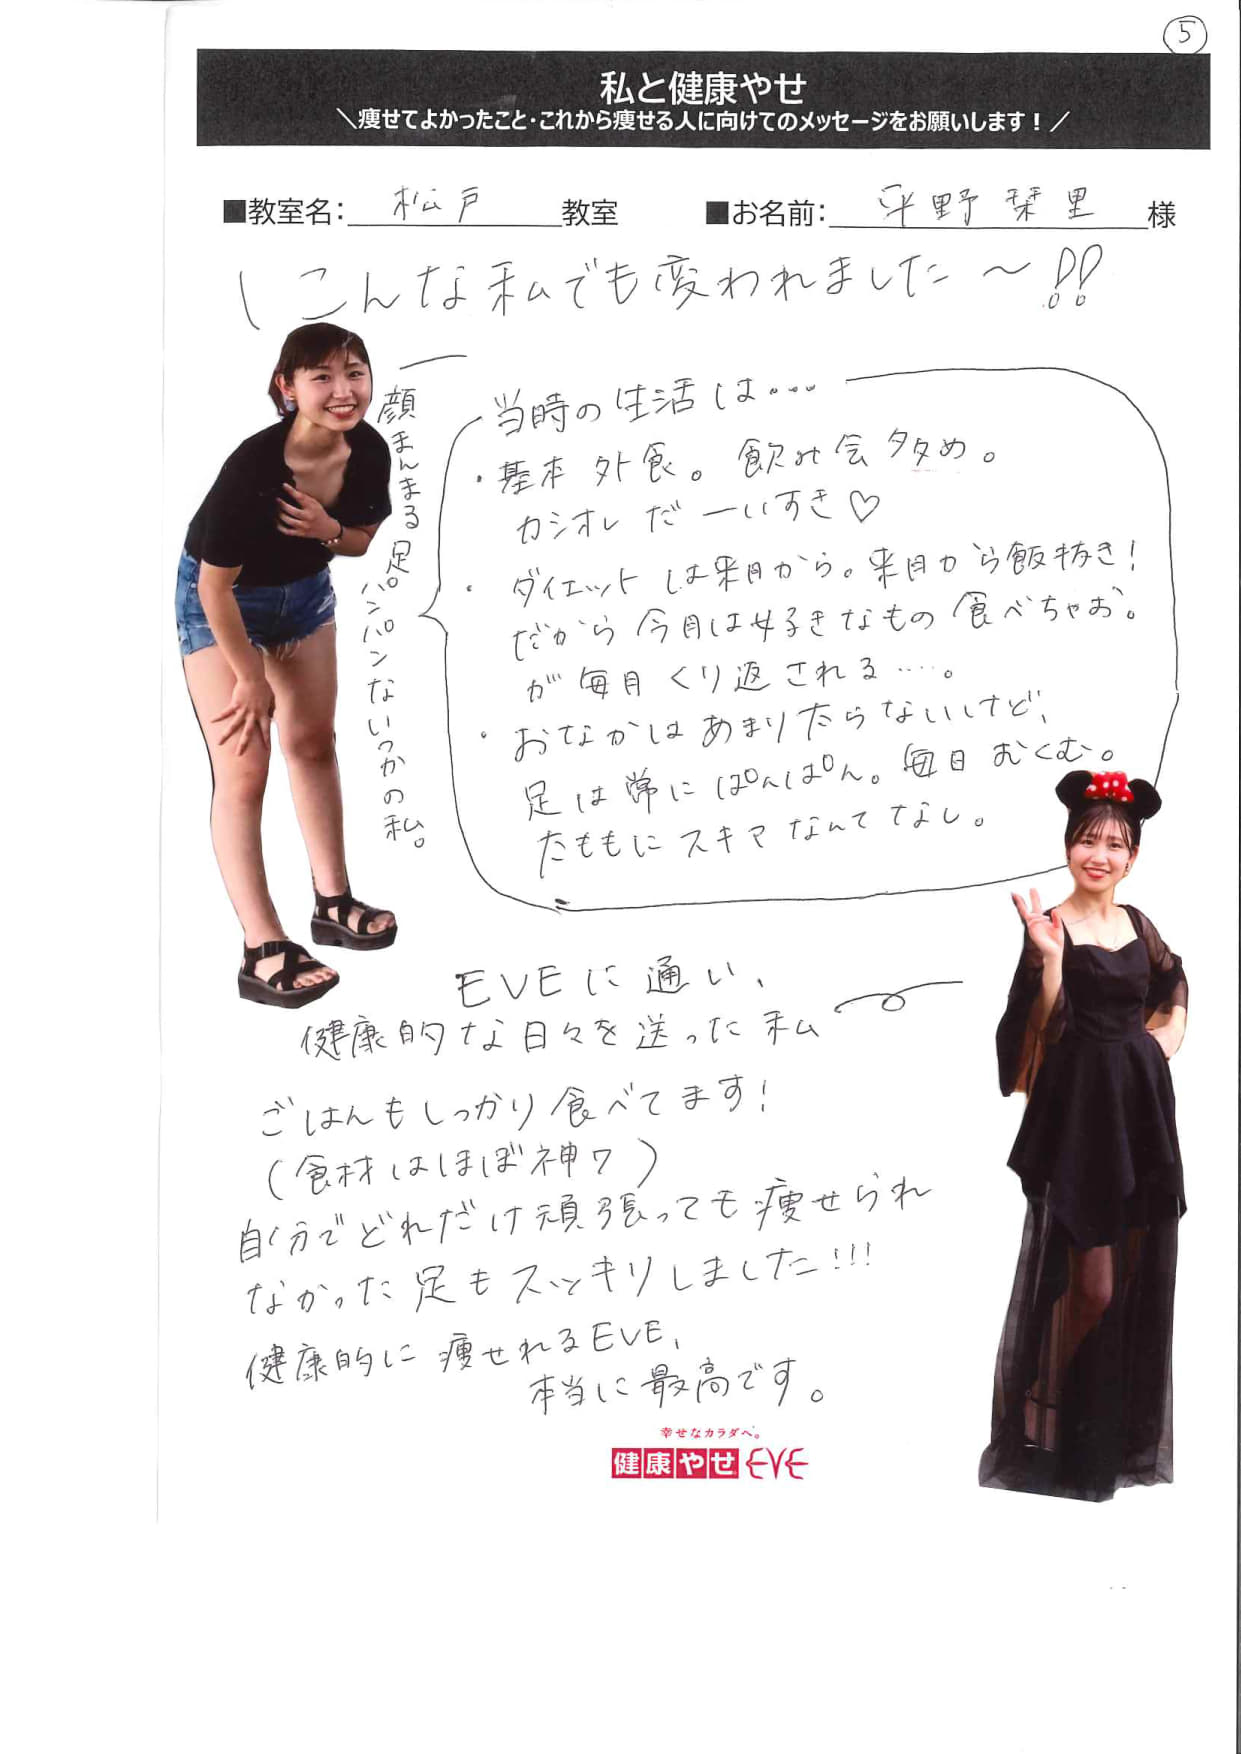 ⑤
私と健康やせ
＼痩せてよかったこと・これから痩せる人に向けてのメッセージをお願いします！／
■教室名：松戸教室 ■お名前：平野栞里様
\こんな私でも変われました〜!!
顔まんまる足パンパンないつかの私。
当時の生活は…
・基本外食。飲み会多め。
カシオレだーいすき♡
・ダイエットは来月から。来月から飯抜き！
だから今月は好きなもの食べちゃお。
が毎月くり返される……。
・おなかはあまり太らないけど、
足は常にぱんぱん。毎日おくむ。
太ももにスキマなんてなし。
EVEに通い、
健康的な日々を送った私
ごはんもしっかり食べてます！
（食材はほぼ神ワ）
自分でどれだけ頑張っても痩せられ
なかった足もスッキリしました!!!
健康的に痩せれるEVE、
本当に最高です。
幸せなカラダへ。
健康やせ EVE